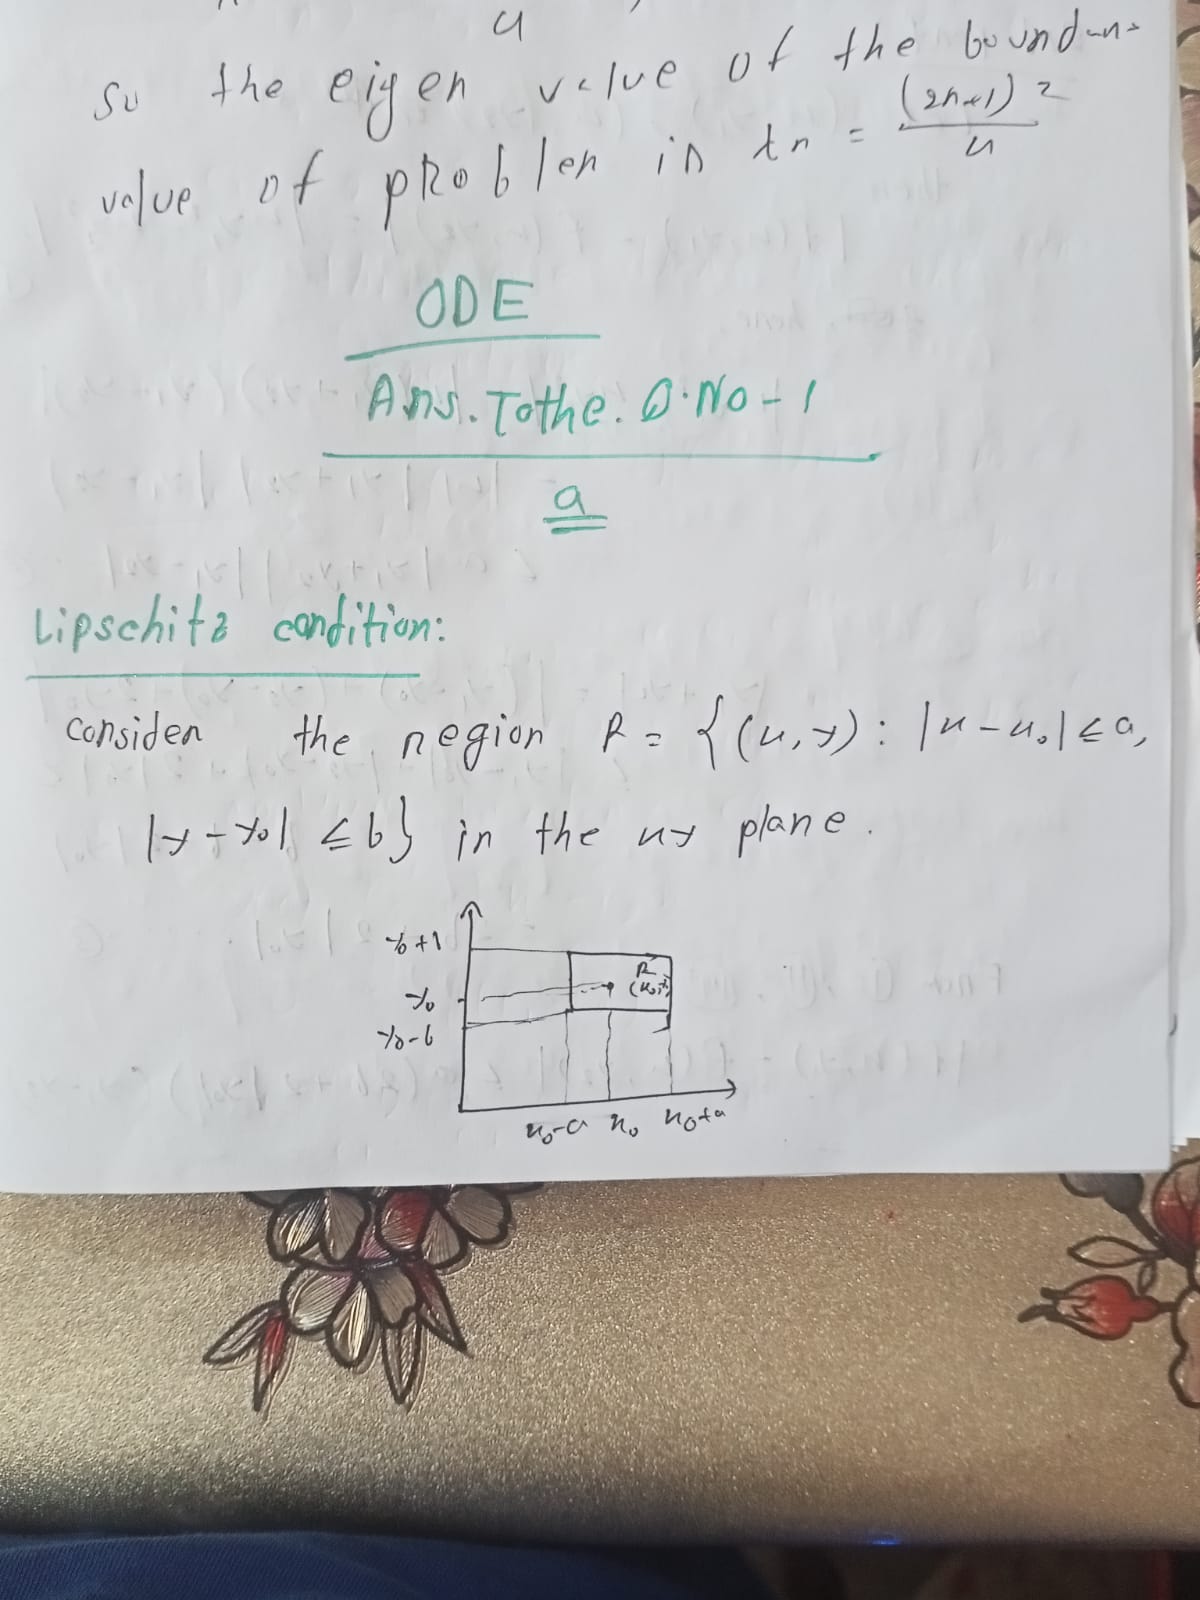 4
So the eigen value of the bounda
value of problem is λn = (2n+1)²/4
ODE
Ans. To the. Q. No - 1
a
Lipschitz condition:
consider the region R = {(x, y) : |x - x₀| ≤ a,
|y - y₀| ≤ b} in the xy plane.
y₀+1
R
y₀
(x₀, y₀)
y₀-b
x₀-a x₀ x₀+a